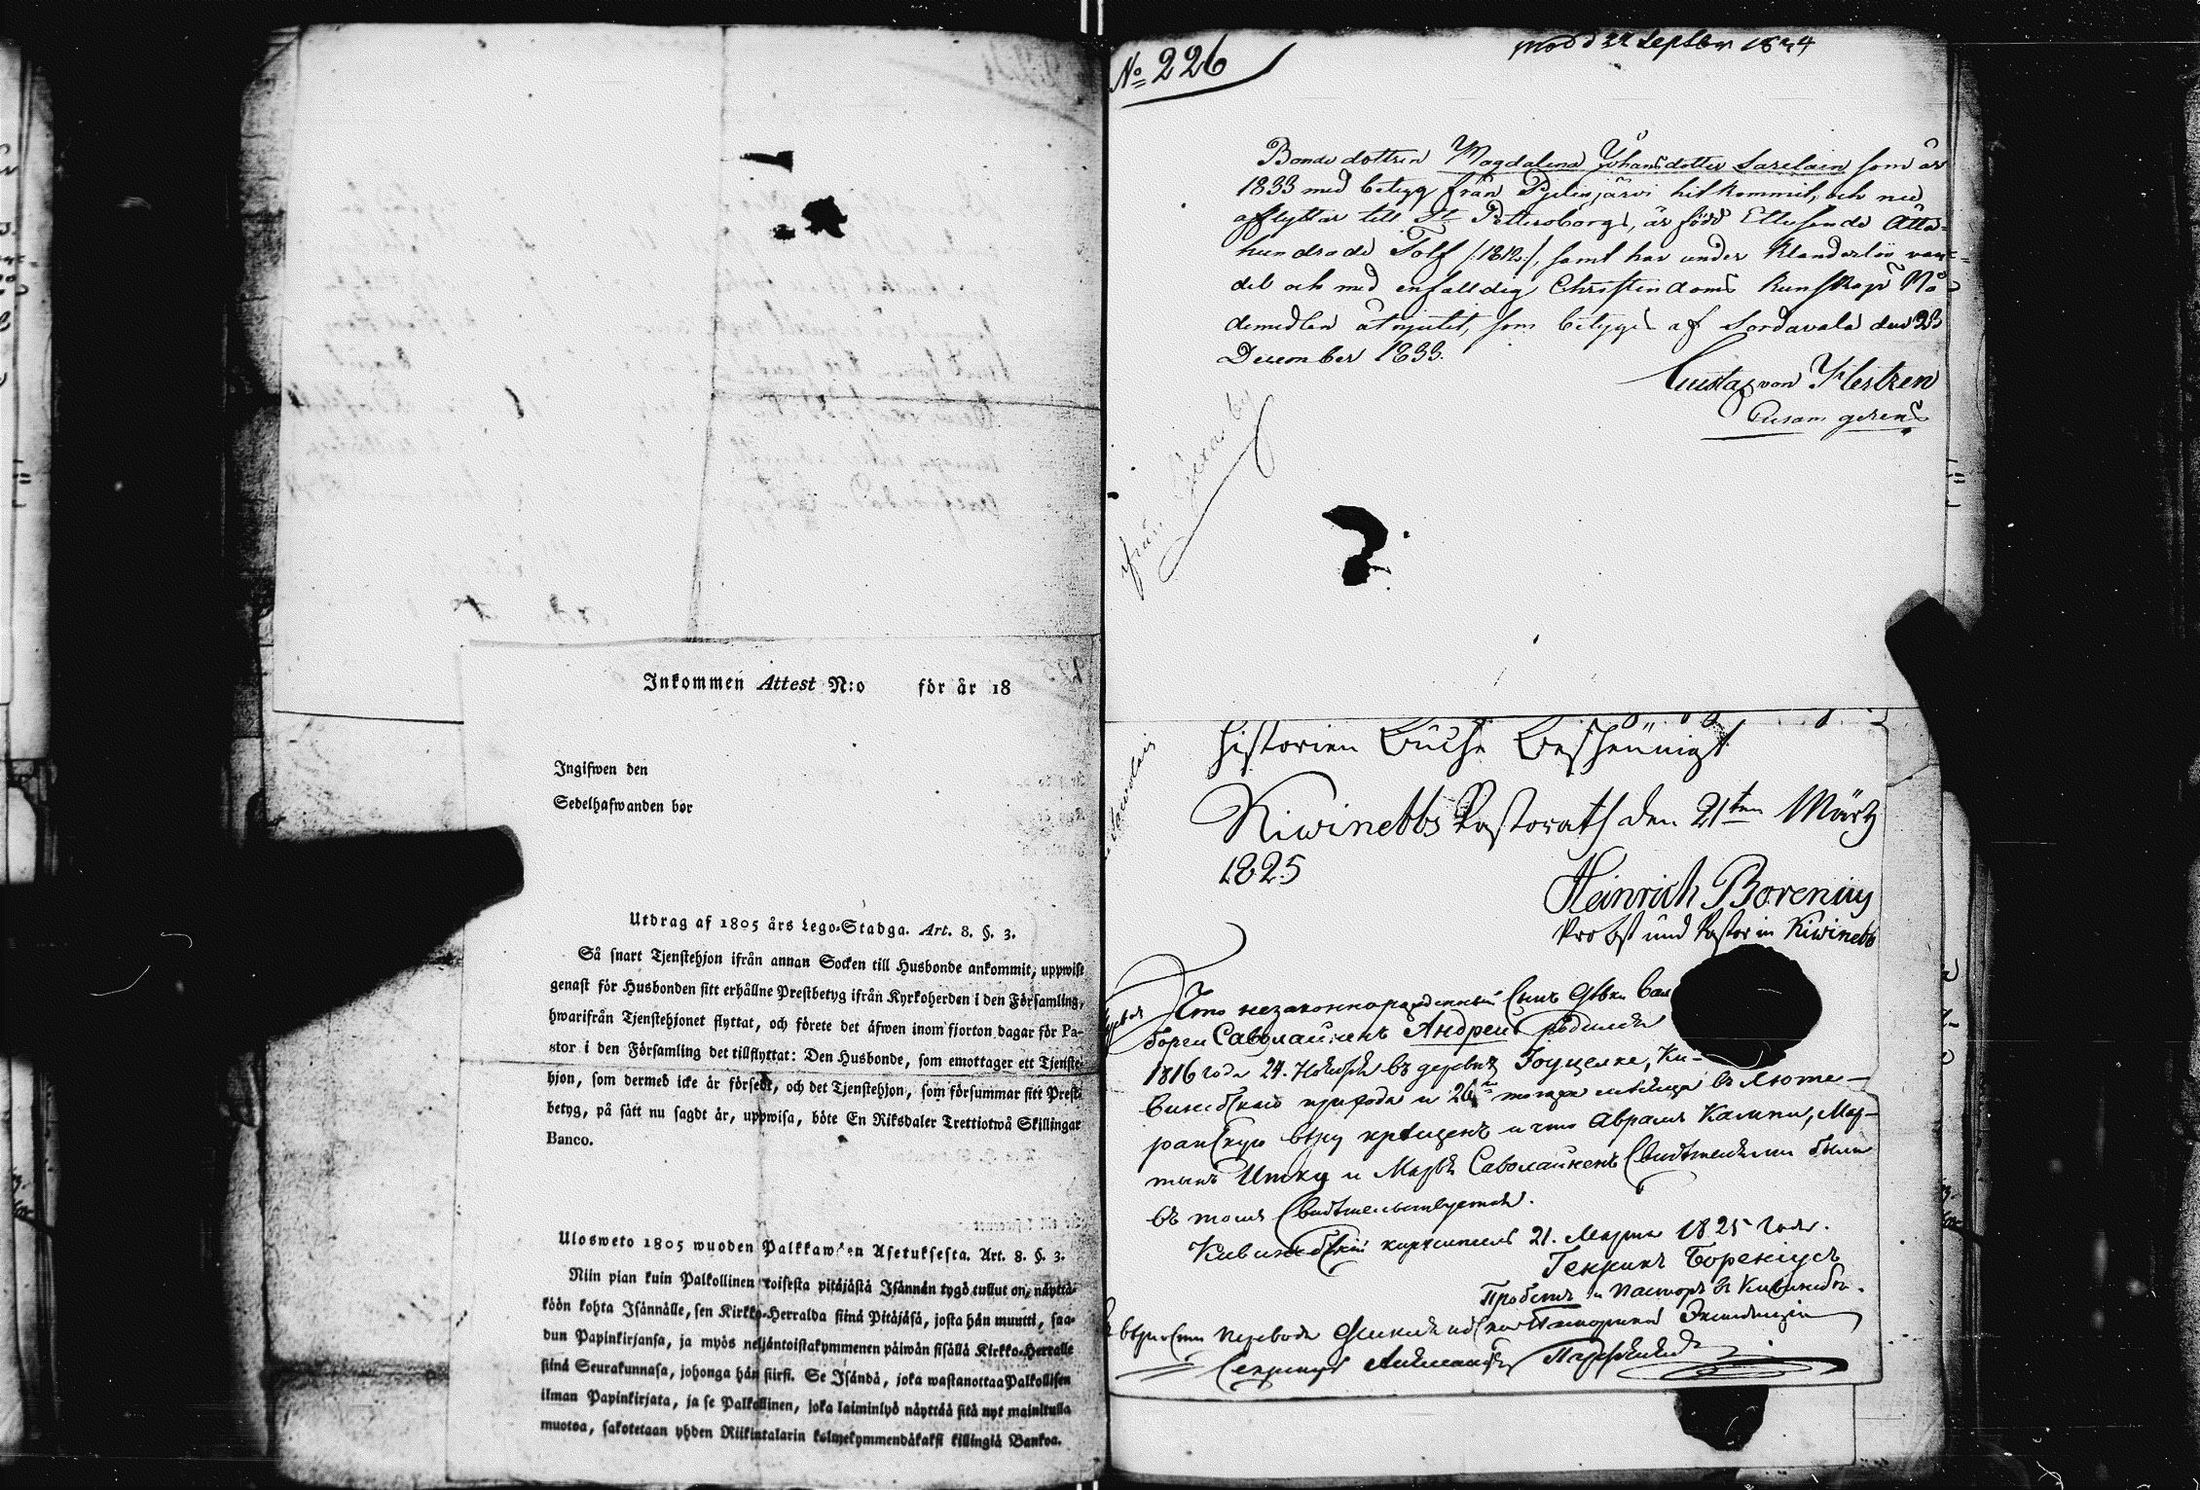 Inkommen Attest N:o för år 18
Ingifwen den
Sedelhafwanden bor
Utdrag af 1805 års Lego-Stadga. Art. 8. §. 3.
Så snart Tjenstehjon ifrån annan Socken till Husbonde ankommit, uppwise
genast för Husbonden sitt erhållne Prestbetyg ifrån Kyrkoherden i den Församling,
hwarifrån Tjenstehjonet flyttat, och förete det äfwen inom fjorton dagar för Pa-
stor i den Församling det tillflyttat: Den Husbonde, som emottager ett Tjenste-
hjon, som dermed icke är försedt, och det Tjenstehjon, som försummar sitt Prest-
betyg, på sätt nu sagdt är, uppwisa, böte En Riksdaler Trettiotwå Skillingar
Banco.
Ulosweto 1805 wuoden Palkkawäen Asetuksesta. Art. 8. §. 3.
Niin pian kuin Palkollinen toisesta pitäjästä Isännän tygö tullut on, näyttä-
köön kohta Isännälle, sen Kirkko-Herralda siinä Pitäjäsä, josta hän muutti, saa-
dun Papinkirjansa, ja myös neljäntoistakymmenen päiwän sisällä Kirkko-Herralle
siinä Seurakunnasa, johonga hän siirsi. Se Isändä, joka wastanottaa Palkollisen
ilman Papinkirjata, ja se Palkollinen, joka laiminlyö näyttää sitä nyt mainitulla
muotoa, sakotetaan yhden Riikintalarin kolmekymmendäkaksi killingiä Bankoa.
№ 226
Septbr 1834
Bonde dottren Magdalena Johansdotter Sarelain som år
1833 med betyg från Pyhäjärvi hit kommit, och nu
afflyttar till St Pettersborg, är född Ettusende Åtta-
hundrade Tolf /:1812:/, samt har under klanderlös van-
del och med enfalldig Christendoms kunskap Nå-
demedlen åtnjutit, som betygas af Sordavala den 23
December 1833.
Gustaf von Hertzen
Cusam gerens
från
historien Buche Bescheinigt
Kiwinebbs Pastorath den 21ten März
1825
Heinrich Borenius
Probst und Pastor in Kiwinebb
Что незаконнорожденный Сынъ Дѣвки
Саволайненъ Андреи родился
1816 года 24. Ноября въ деревнѣ Ки-
винебскаго прихода и 26го тогоже мѣсяца въ Люте-
ранскую вѣру крещенъ и что Абрамъ Кампи, Мар-
тынъ и Марья Саволайненъ Свидѣтелями были
въ томъ Свидѣтельствуетъ.
21. Марта 1825 года.
Генрихъ Борениусъ
Пробстъ и Пасторъ въ Кивинебъ.